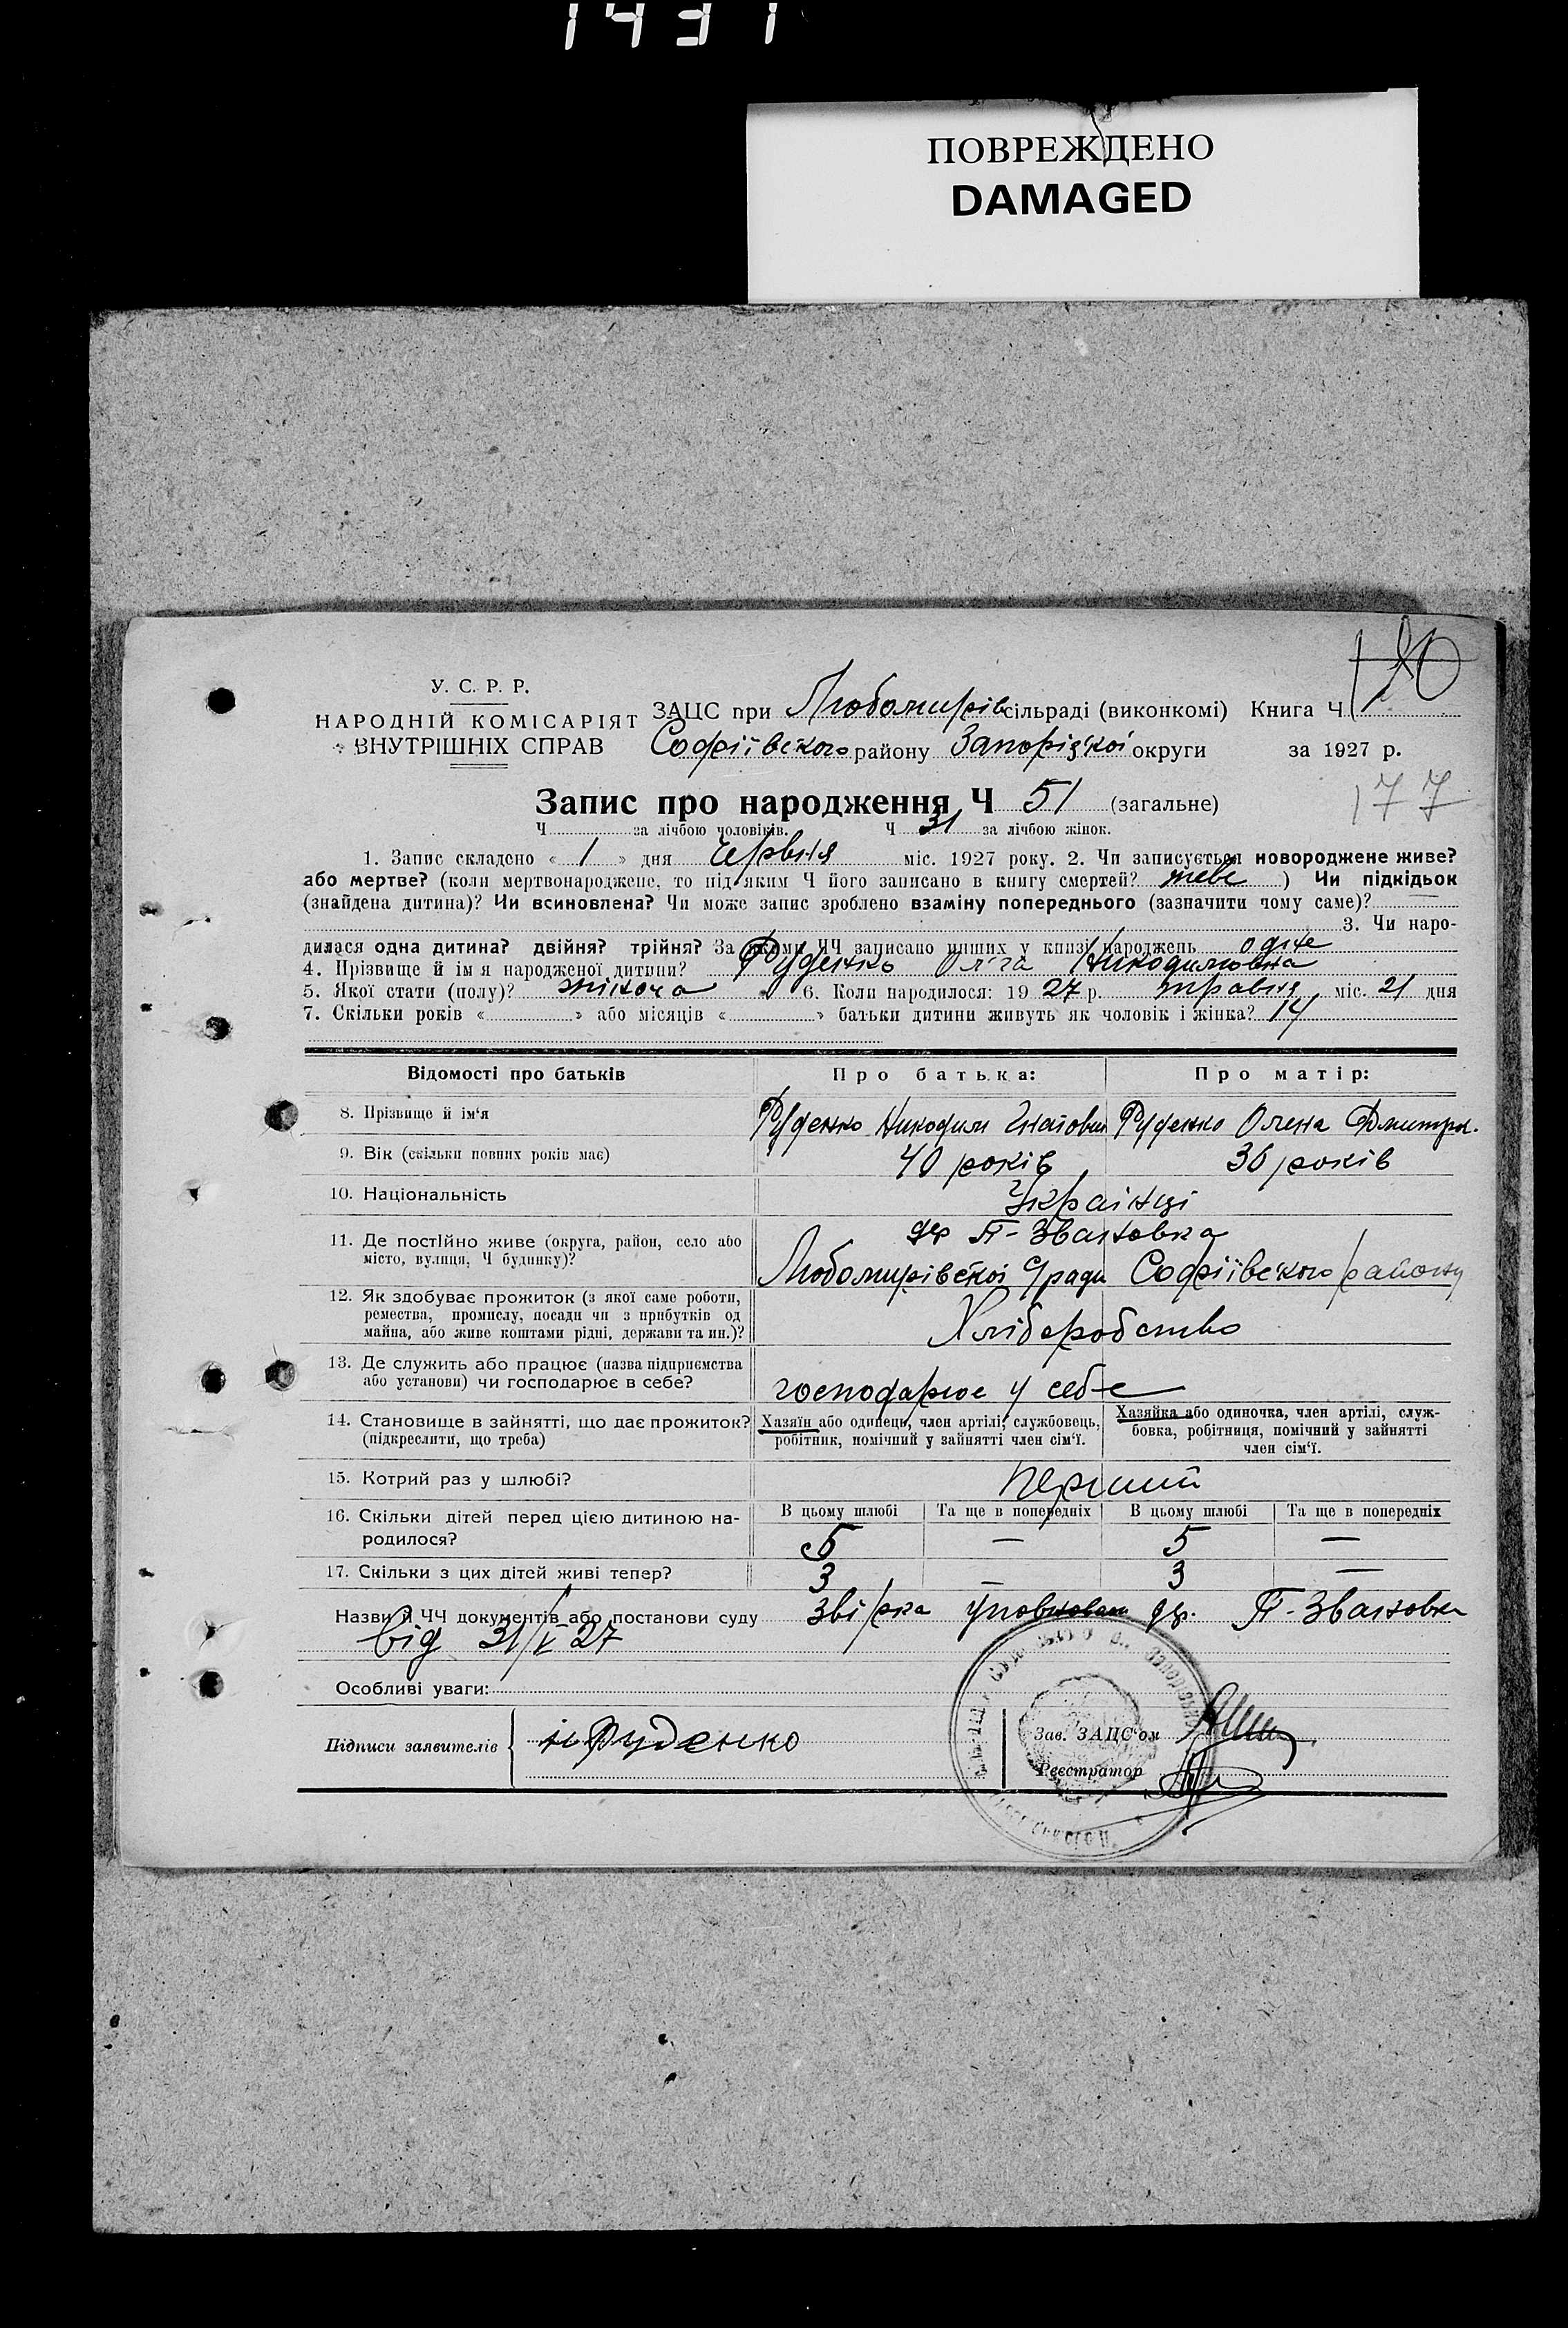 1431
ПОВРЕЖДЕНО
DAMAGED
У. С. Р. Р.
НАРОДНІЙ КОМІСАРІЯТ
ВНУТРІШНІХ СПРАВ
ЗАЦС при Любомирів сільраді (виконкомі) Книга Ч
Софіївского району Запорізкої округи за 1927 р.
177
Запис про народження Ч 51 (загальне)
Ч за лічбою чоловіків. Ч 31 за лічбою жінок.
1. Запис складено « 1 » дня червня міс. 1927 року. 2. Чи записується новороджене живе?
або мертве? (коли мертвонароджене, то під яким Ч його записано в книгу смертей? живе ) Чи підкідьок
(знайдена дитина)? Чи всиновлена? Чи може запис зроблено взаміну попереднього (зазначити чому саме)?
3. Чи наро-
дилася одна дитина? двійня? трійня? За якими ЧЧ записано инших у книзі народжень одне
4. Прізвище й ім я народженої дитини? Руденко Ольга Никодимовна
5. Якої стати (полу)? жіноча 6. Коли народилося: 19 27 р. травня міс. 21 дня
7. Скільки років « » або місяців « » батьки дитини живуть як чоловік і жінка? 14
Відомості про батьків Про батька: Про матір:
8. Прізвище й ім‘я Руденко Никодим Гнатович Руденко Олена Дмитрів.
9. Вік (скільки повних років має) 40 років 36 років
10. Національність Українці
дер П-Звановка
11. Де постійно живе (округа, район, село або
місто, вулиця, Ч будинку)? Любомирівскої С/ради Софіївского району
12. Як здобуває прожиток (з якої саме роботи,
ремества, промислу, посади чи з прибутків од
майна, або живе коштами рідні, держави та ин.)? Хліборобство
13. Де служить або працює (назва підприємства
або установи) чи господарює в себе? господарює у себе
14. Становище в зайнятті, що дає прожиток? Хазяїн або одинець, член артілі, службовець, Хазяйка або одиночка, член артілі, служ-
(підкреслити, що треба) робітник, помічний у зайнятті член сім‘ї. бовка, робітниця, помічний у зайнятті
член сім‘ї.
15. Котрий раз у шлюбі? перший
16. Скільки дітей перед цією дитиною на- В цьому шлюбі Та ще в попередніх В цьому шлюбі Та ще в попередніх
родилося? 5 — 5 —
17. Скільки з цих дітей живі тепер? 3 — 3 —
Назви й ЧЧ документів або постанови суду уповноваж дер. П-Звановка
від 31/V 27
Особливі уваги:
Підписи заявителів Н Руденко Зав. ЗАЦС‘ом
Реєстратор